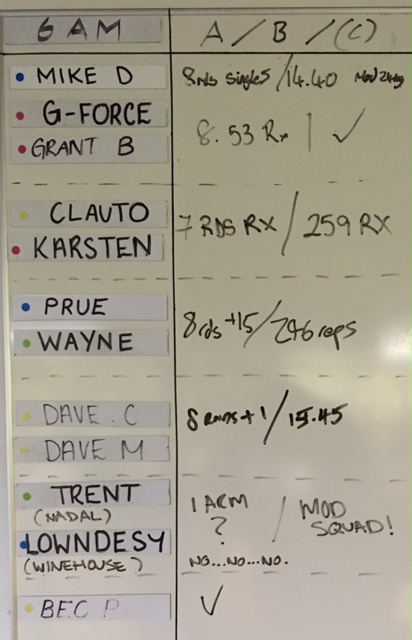 6 AM A / B / (C)
MIKE D 8rds singles / 14.40 Mod 24kg
G-FORCE
GRANT B 8.53 Rx | ✓
CLAUTO
KARSTEN 7 RDS RX / 259 RX
PRUE
WAYNE 8rds +15 / 246 reps
DAVE . C 8 rnds + 1 / 15.45
DAVE M
TRENT 1 ARM / MOD
(NADAL) ? SQUAD!
LOWNDESY
(WINEHOUSE) NO...NO...NO.
BEC P ✓